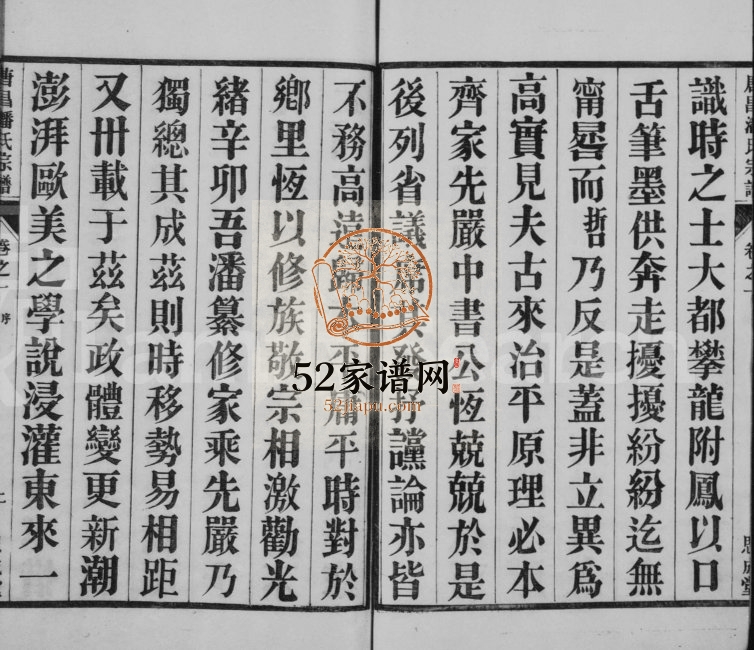 識時之士大都攀龍附鳳以口
舌筆墨供奔走擾擾紛紛迄無
甯晷而哲乃反是蓋非立異爲
高實見夫古來治平原理必本
齊家先嚴中書公恆兢兢於是
後列省議席其發抒讜論亦皆
不務高遠歸本平庸平時對於
鄉里恆以修族敬宗相激勸光
緒辛卯吾潘纂修家乘先嚴乃
獨總其成茲則時移勢易相距
又卅載于茲矣政體變更新潮
澎湃歐美之學說浸灌東來一
唐昌潘氏宗譜
卷之一
序
52家谱网
52jiapu.com